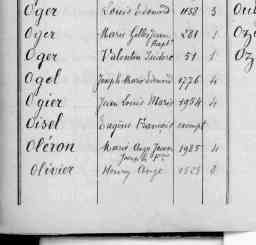 Oger Louis Edouard 1158 3
Oger Marie Gilles Jean Bapt 281 1
Oger Valentin Isidore 51 1
Ogel Joseph Marie Edouard 1776 4
Ogier Jean Louis Marie 1954 4
Oisel Eugène François exempt
Oléron Marie Ange Jean 1985 4
Joseph
Olivier Henry Ange 1523